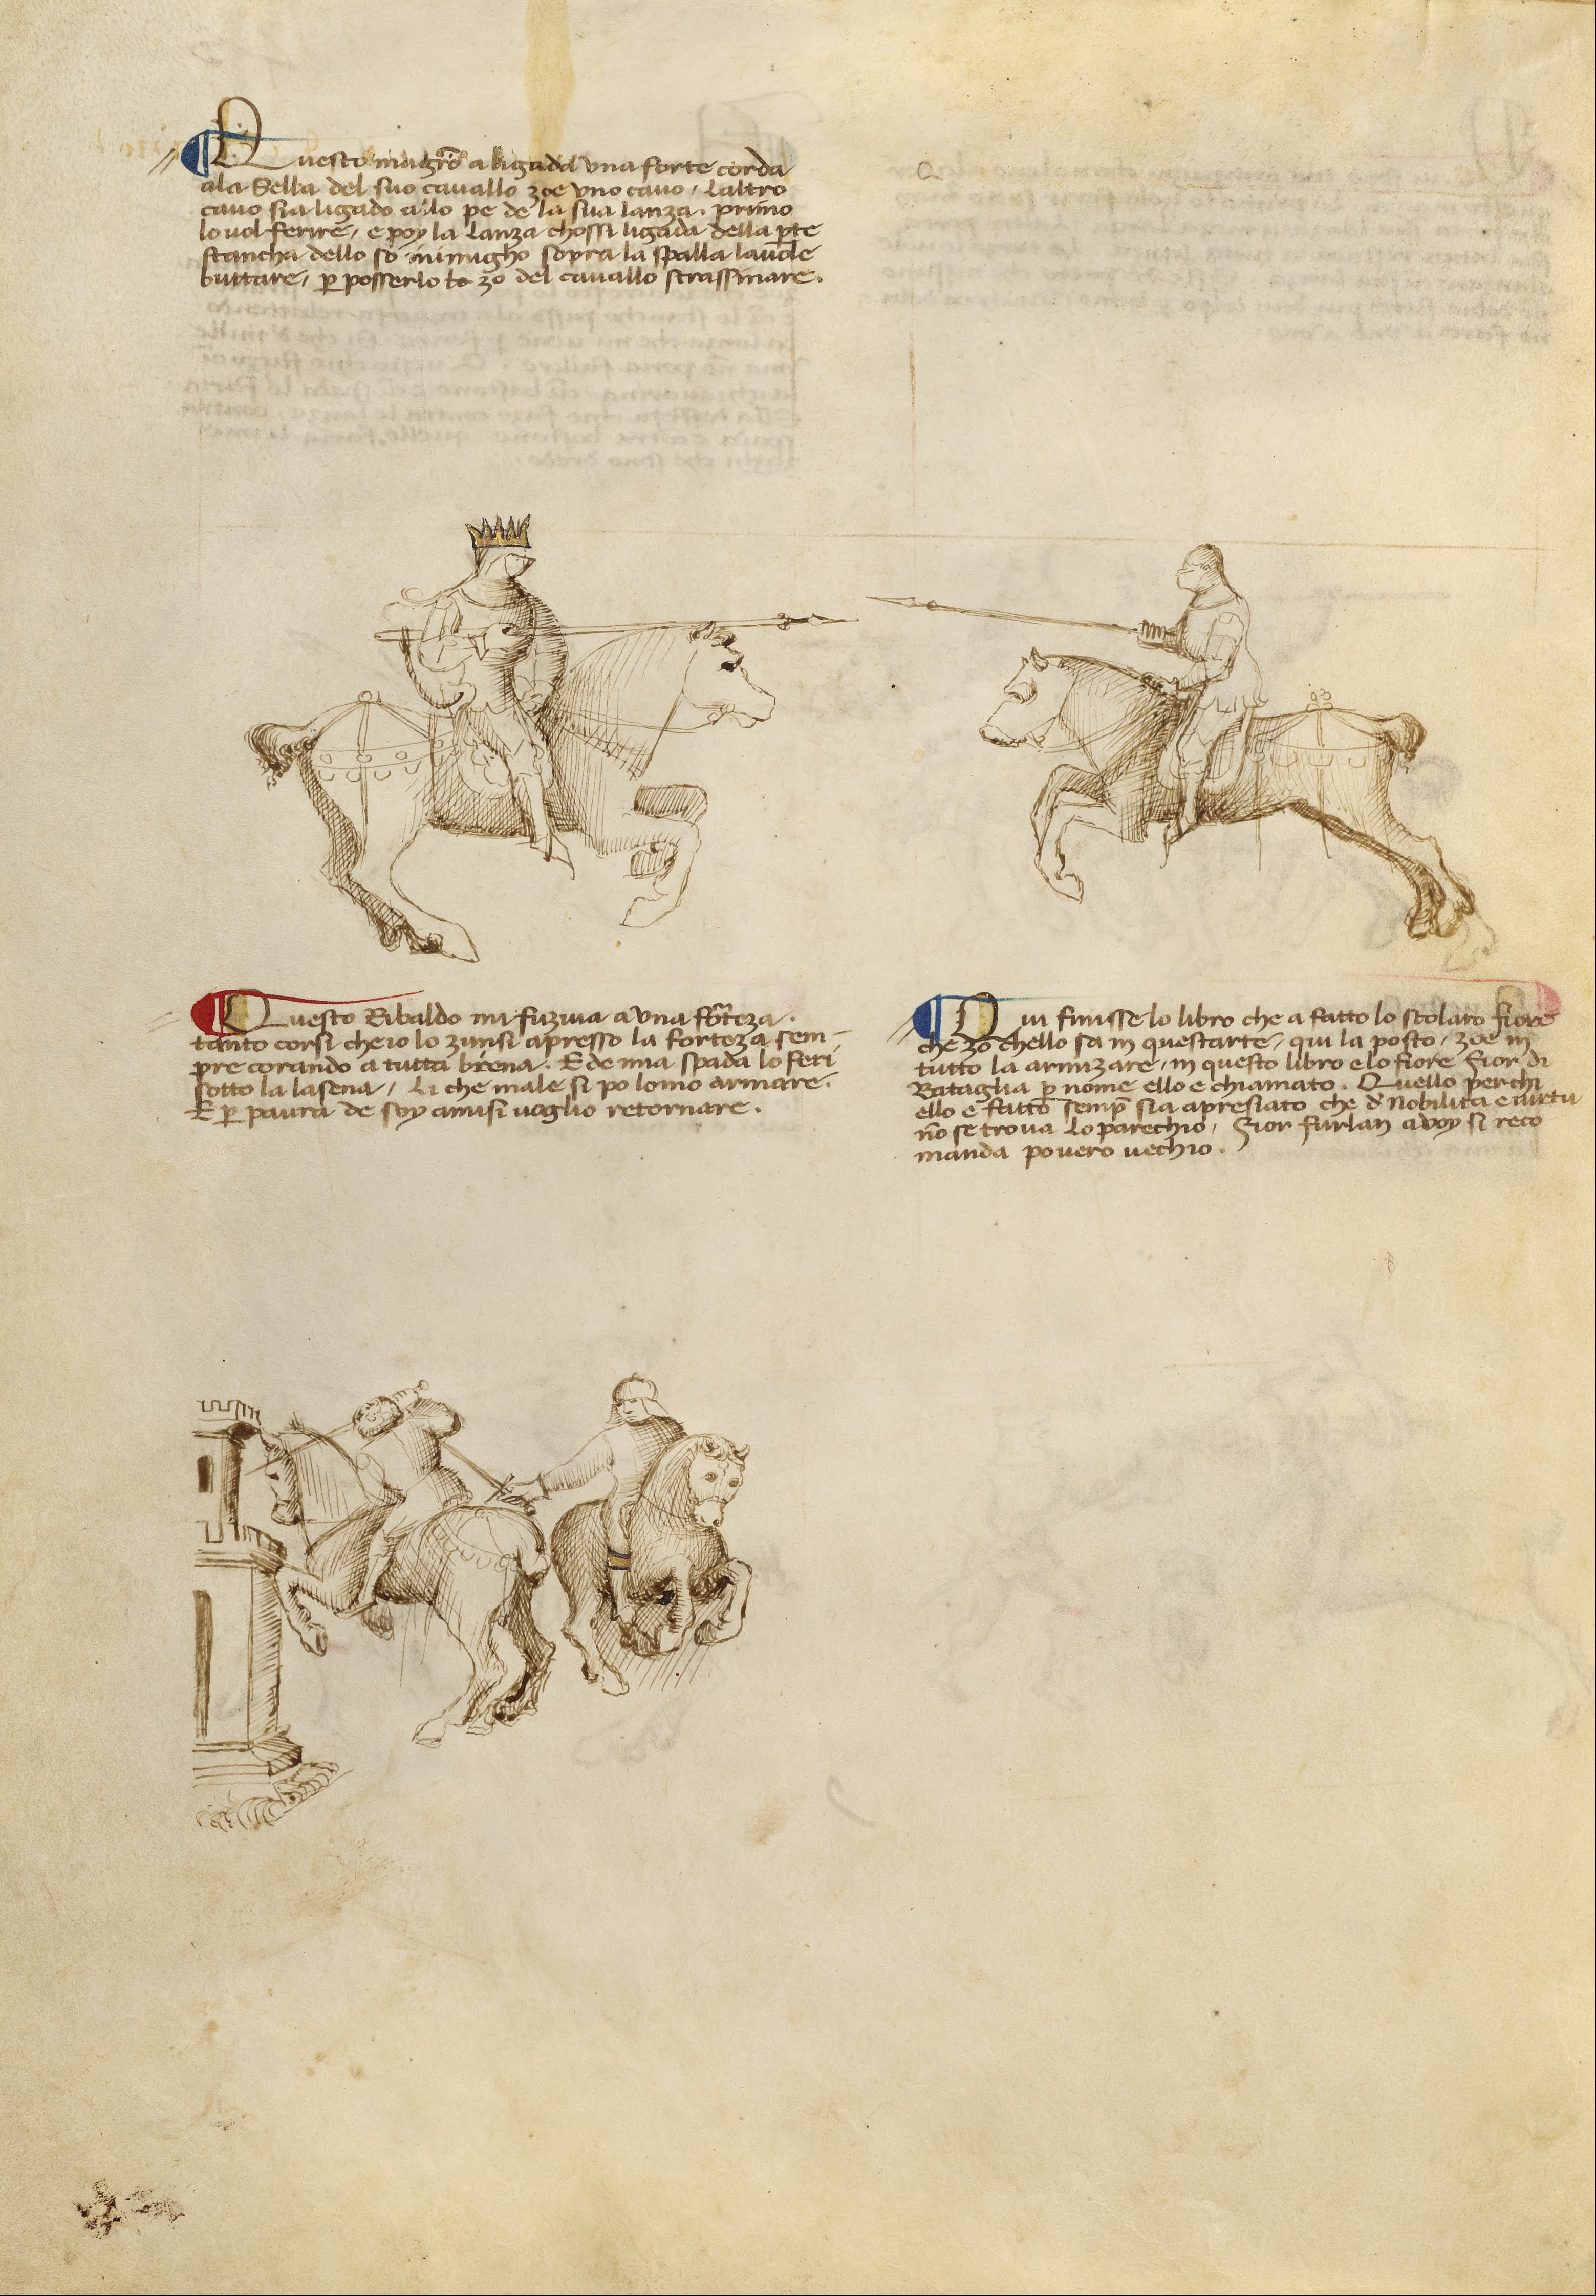 Questo magrō a ligada una forte corda
ala Sella del suo cavallo zoe uno cavo / Laltro
cavo sia ligado allo pe de la sua lanza. primo
lo vol ferire / e poy la lanza chossi ligada della pte
stancha dello so inimigho sopra la spalla la vole
buttare / p posserlo to zo del cavallo strassinare.
Questo Ribaldo mi fuziva a una forteza.
tanto corsi che io lo zunsi apresso la forteza sem-
pre corando a tutta brena. E de mia spada lo feri
sotto la lasena / Li che male si po lomo armare.
E p paura de soy amisi voglio retornare.
Qui finisse lo libro che a fatto lo scolaro fiore
che zo chello sa in questarte / qui la posto / zoe in
tutto la armizare / in questo libro e lo fiore Fior di
Bataglia p nome ello e chiamato. Quello per chi
ello e fatto semp sia apresiato che d nobilita e virtu
nō se trova Lo parechio / Fior furlan a voy si reco
manda povero vechio.